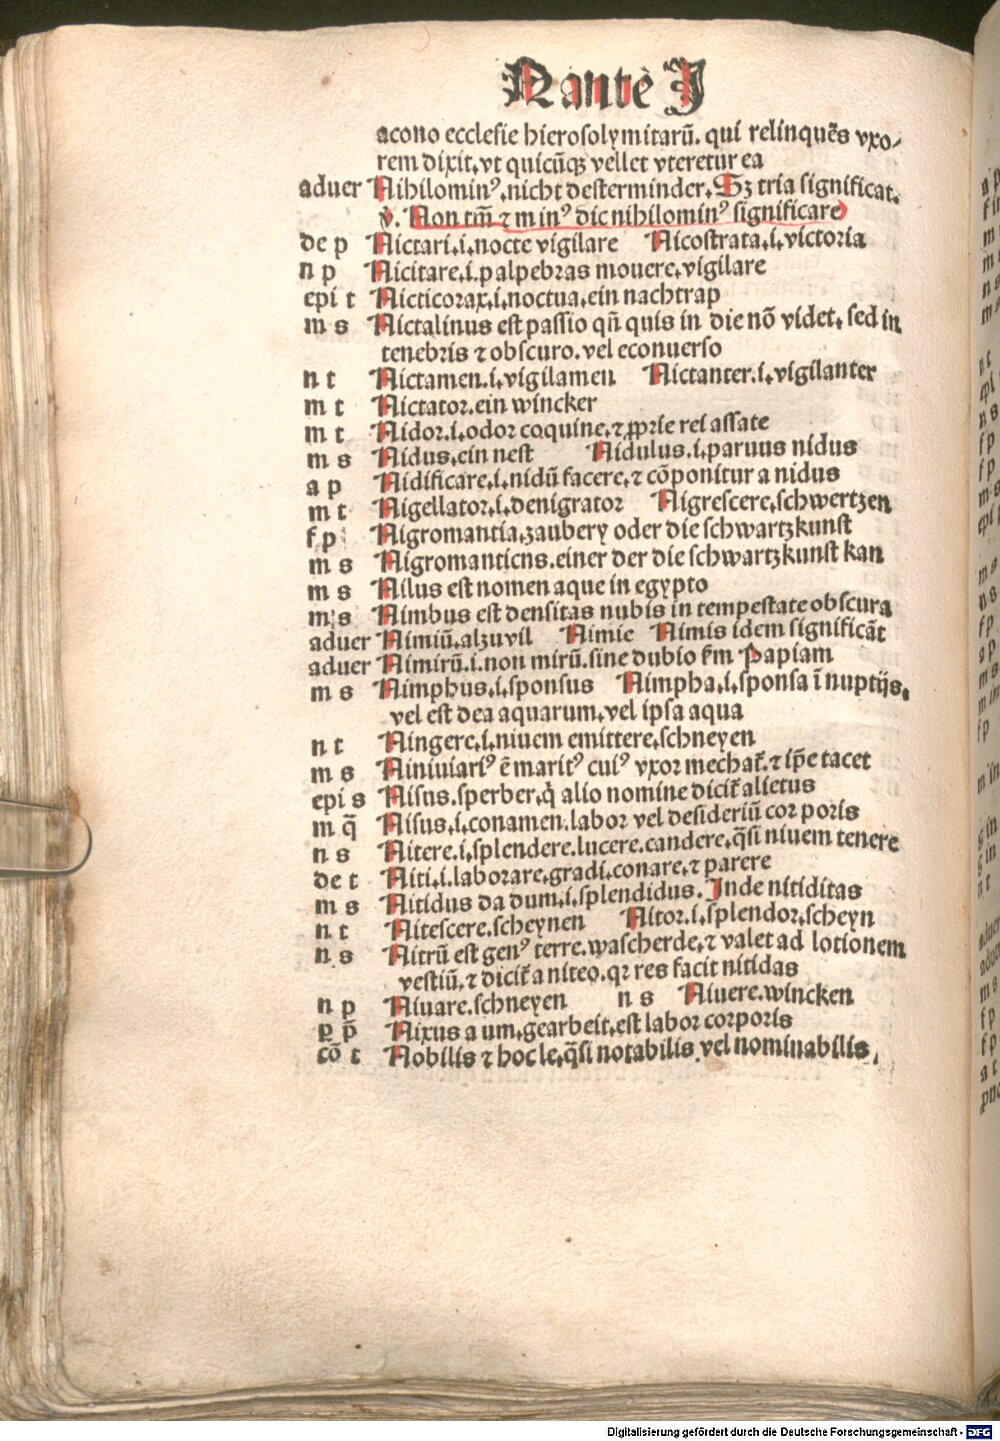 N antē J
acono ecclesie hierosolymitarū. qui relinquēs vxo-
rem dixit, vt quicūqꝫ vellet vteretur ea
aduer Nihilominꝰ, nicht desterminder, Sꝫ tria significat,
v̊. Non tm̄ ⁊ minꝰ dic nihilominꝰ significare
de p Nictari, i, nocte vigilare Nicostrata, i, victoria
n p Nicitare, i. palpebras mouere, vigilare
epi t Nicticorax, i, noctua, ein nachtrap
m s Nictalinus est passio qn̄ quis in die nō videt, sed in
tenebris ⁊ obscuro. vel econuerso
n t Nictamen. i, vigilamen Nictanter. i, vigilanter
m t Nictator. ein wincker
m t Nidor. i, odor coquine, ⁊ ꝓprie rei assate
m s Nidus, ein nest Nidulus. i, paruus nidus
a p Nidificare, i, nidū facere, ⁊ cōponitur a nidus
m t Nigellator, i, denigrator Nigrescere, schwertzen
f p Nigromantia, zaubery oder die schwartzkunst
m s Nigromanticns. einer der die schwartzkunst kan
m s Nilus est nomen aque in egypto
m s Nimbus est densitas nubis in tempestate obscura
aduer Nimiū, alzuvil Nimie Nimis idem significāt
aduer Nimirū. i. non mirū. sine dubio ẜm Papiam
m s Nimphus, i, sponsus Nimpha, i, sponsa ī nuptijs,
vel est dea aquarum, vel ipsa aqua
n t Ningere, i, niuem emittere, schneyen
m s Niniuiariꝰ ē maritꝰ cuiꝰ vxor mechat᷑. ⁊ ip̄e tacet
epi s Nisus. sperber, q̇ alio nomine dicit᷑ alietus
m q̄ Nisus, i, conamen. labor vel desideriū corporis
n s Nitere. i, splendere. lucere. candere, q̄si niuem tenere
de t Niti, i. laborare, gradi, conare, ⁊ parere
m s Nitidus da dum, i, splendidus. Inde nitiditas
n t Nitescere. scheynen Nitor. i, splendor, scheyn
n s Nitrū est genꝰ terre. wascherde, ⁊ valet ad lotionem
vestiū, ⁊ dicit᷑ a niteo, qꝛ res facit nitidas
n p Niuare. schneyen n s Niuere. wincken
ꝑ p̄ Nixus a um, gearbeit, est labor corporis
cō t Nobilis ⁊ hoc le, q̄si notabilis vel nominabilis,
Digitalisierung gefördert durch die Deutsche Forschungsgemeinschaft - DFG